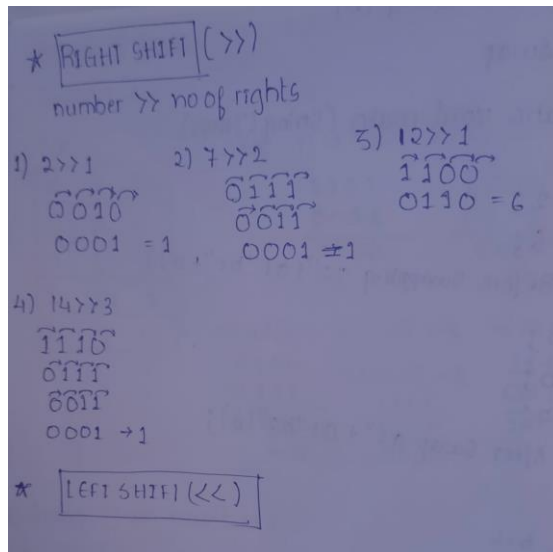 * RIGHT SHIFT (>>)
number >> no of rights
1) 2>>1
0010
0001 = 1,
2) 7>>2
0111
0011
0001 = 1
3) 12>>1
1100
0110 = 6
4) 14>>3
1110
0111
0011
0001 → 1
* LEFT SHIFT (<<)